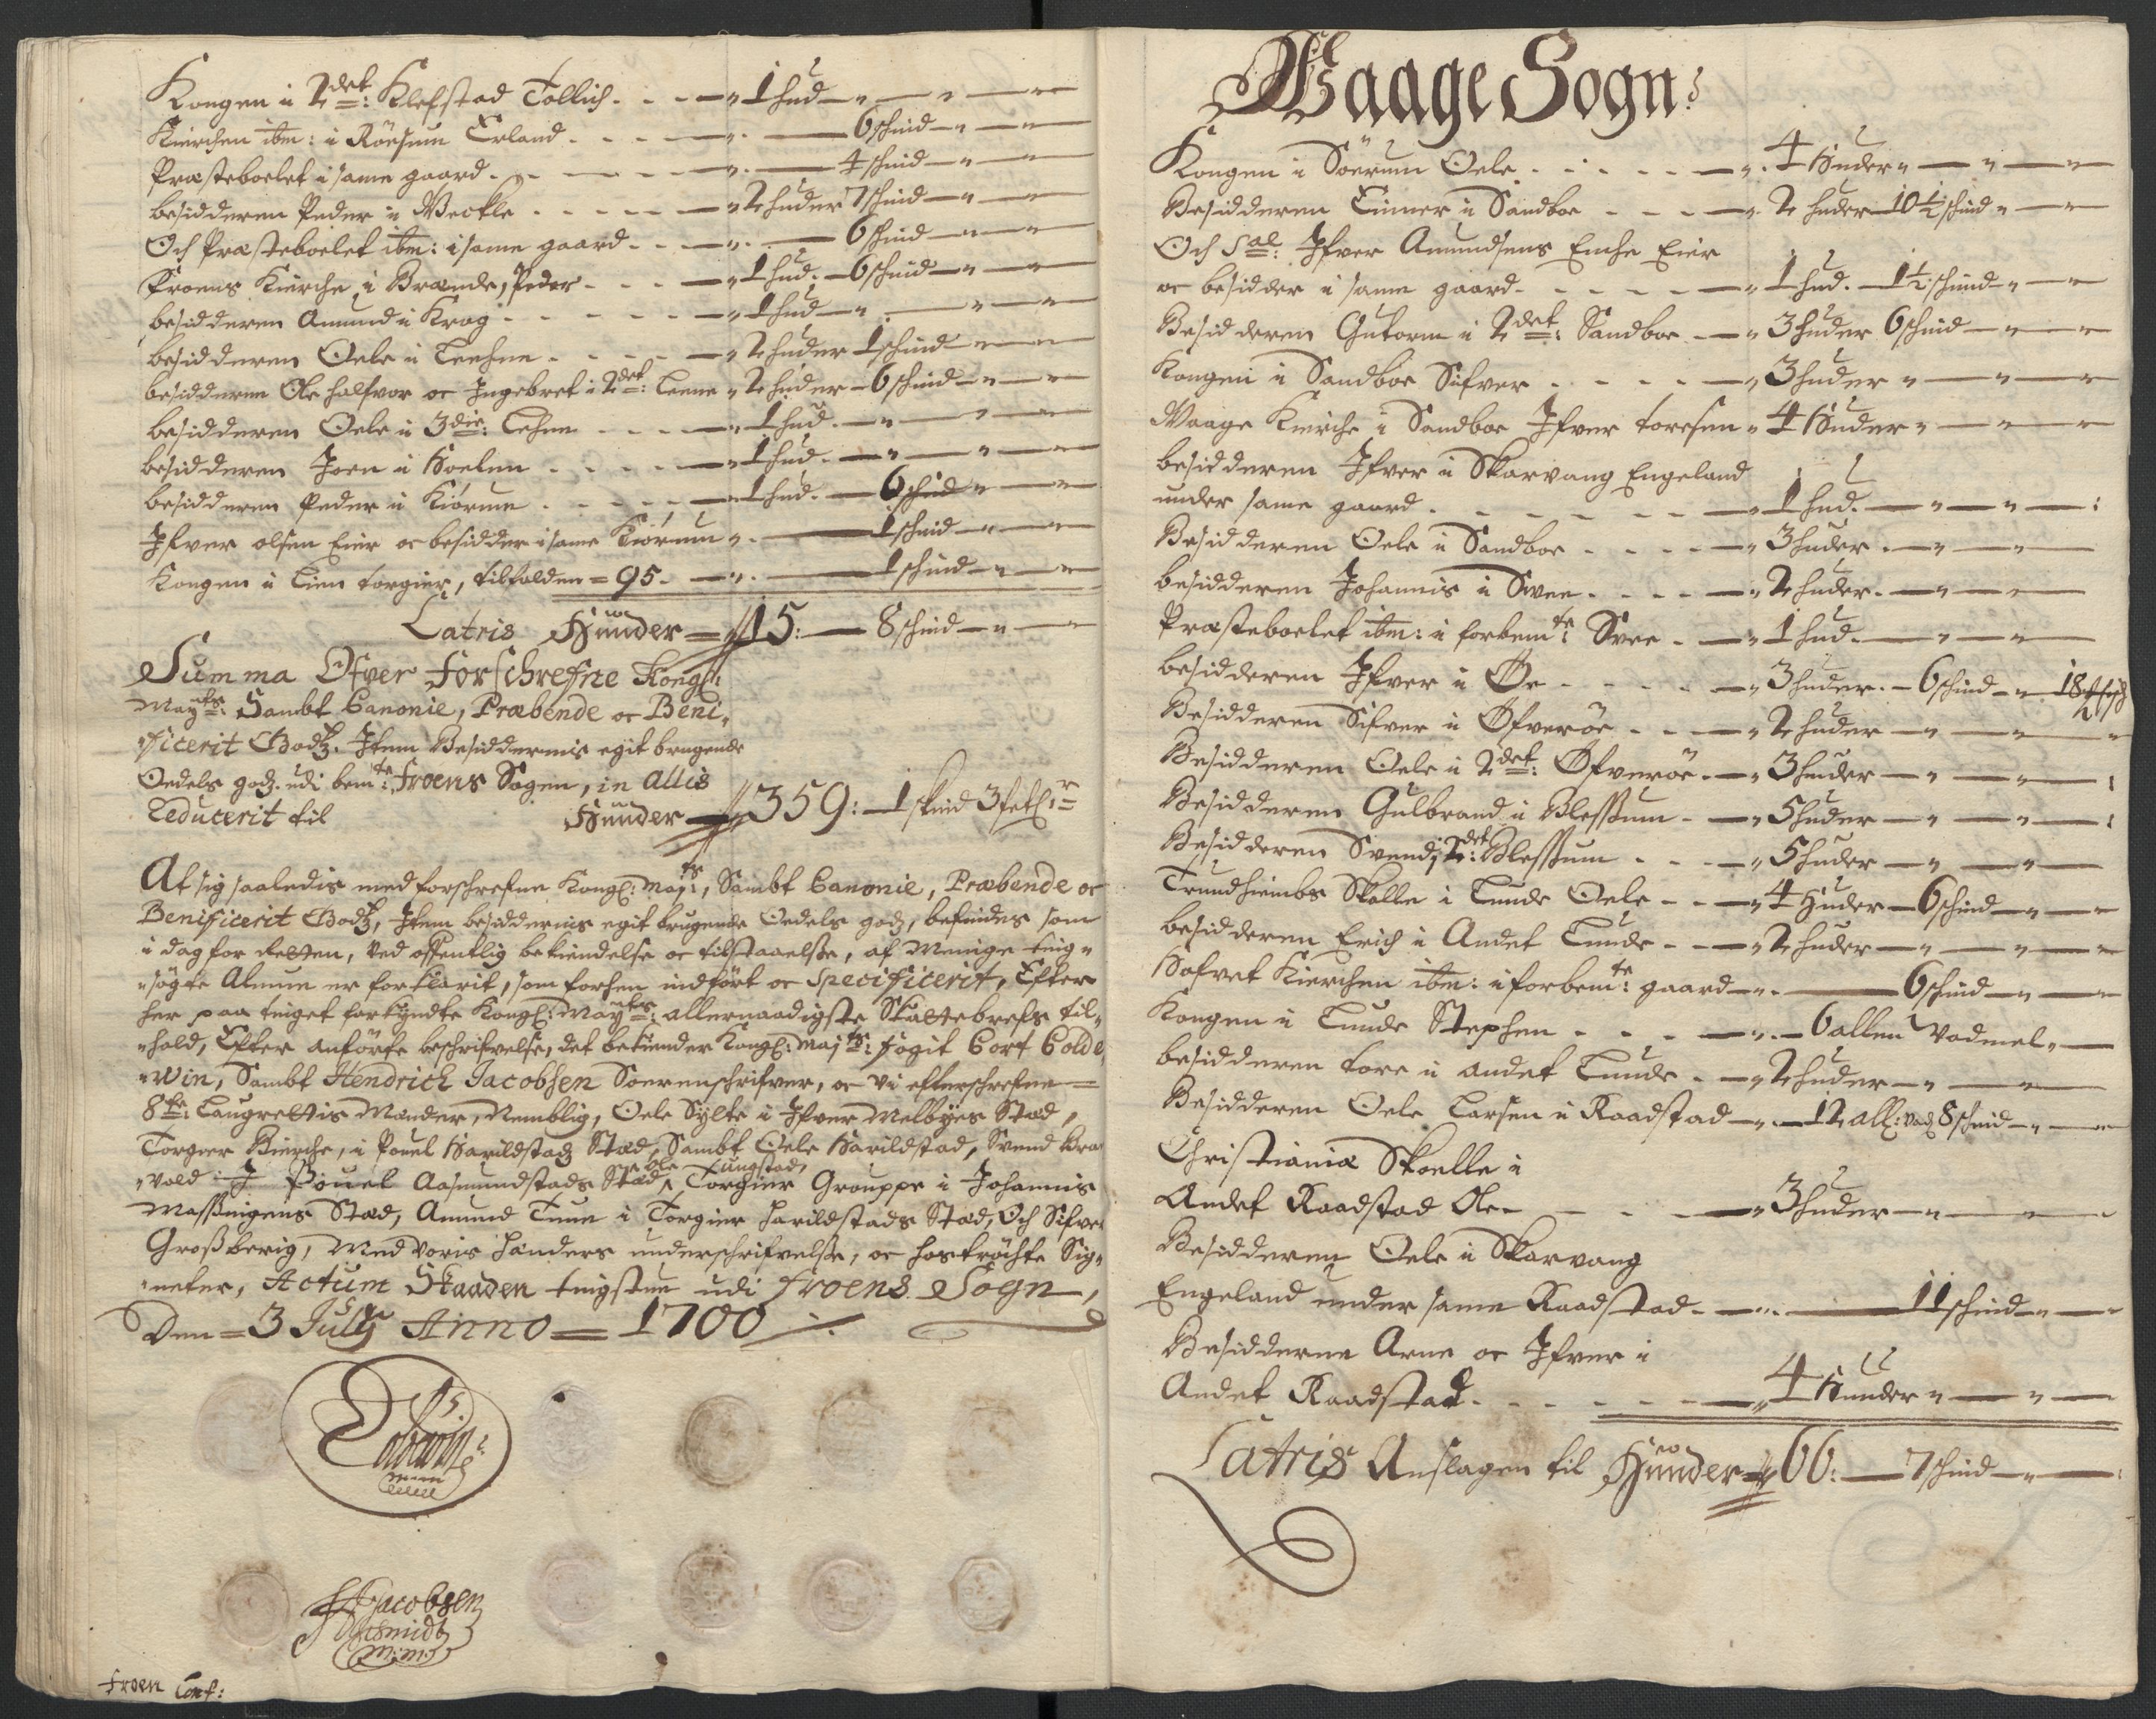 Kongen i 2det: Klefstad Tollich - - - 1 hud
Kierchen ibm: i Röesum Erland - - - 6 schind
Præsteboelet i same gaard - - - 4 schind
besidderen Peder i Weckle - - - 2 huder 7 schind
Och Præsteboelet ibm: i same gaard - - - 6 schind
Froens Kierche i Brænde, Peder - - - 1 hud - 6 schind
besidderen Amund i Krog - - - 1 hud
besidderen Oele i Leehne - - - 2 huder 1 schind
besidderen Ole halfvor oc Ingebret i 2det: Leene 2 huder - 6 schind
besidderen Oele i 3die: Lehne - - - 1 hud
besidderen Joen i Hoelen - - - 1 hud
besidderen Peder i Kiörum - - - 1 hud - 6 schind
Ifver olsen Eier oc besidder i same Kiörum - 1 schind
Kongen i Lien torgier, tilfalden = 95 - 1 schind
Latris Hünder = 15: - 8 schind
Summa Ofver forschrefne Kongl:
Mayts: Sambt Canonie, Præbende oc Beni-
ficerit Godtz. Item Besiddernis egit brugende
Oedels godz. udi bemte: Froens Sogen, in allis
Reducerit til Hünder 359: - 1 skind 3 fetl:r
At sig saaledis med forschrefne Kongl: Mayts:, Sambt Canonie, Præbende oc
Benificerit Godtz, Item besiddernis egit brugende Oedels godz, befindes som
i dag for Retten, ved offentlig bekiendelse oc tilstaaelse, af Menige ting-
søgte Almue er forklarit, som forhen indført oc Specificerit, Efter
her paa tinget forkyndte Kongl: Mayts: allernaadigste Skattebrefs til-
hold, Efter anförte beschrifvelse, det bekiender Kongl: Majts: fogit Cort Colde-
win, Sambt Hendrich Jacobsen Sorenschrifver, oc vi efterschrefne
8te: Laugrettis Mænder, Nemblig, Oele Sylte i Ifver Melbyes Stæd,
Torger Bierche, i Povel Harildstadz Stæd, Sambt Oele Harildstad, Svend Bra
vold Povel Aasmundstads Stæd, Ole Lungstad, Torgier Grouppe i Johannis
Massingens Stæd, Amund Tune i Torgier Harildstads Stæd, Och Sifver
Grossberig, Med voris hænders underschrifvelse, oc hostrÿchte Sig-
neter, Actum Skaaden tingstue udi Froens Sogn,
Den = 3 July Anno = 1700
HJacobsen
Schmidt
M:m:
Froen Conf:
Waage Sogn:
Kongen i Söerum Oele - - - 4 Huder
Besidderen Einner i Sandboe - - - 2 huder 10 1/2 schind
Och Sal: Ifver Amundsens Enche Eier
oc besidder i same gaard - - - 1 hud. 1 1/2 schind
Besidderen Gutorm i 2det: Sandboe - 3 huder 6 schind
Kongen i Sandboe Sifver - - - 3 huder
Waage Kierche i Sandboe Ifver toresen 4 Huder
besidderen Ifver i Skarvang Engeland
under same gaard - - - 1 hud.
Besidderen Oele i Sandboe - - - 3 huder
besidderen Johannis i Svee - - - 2 huder
Præsteboelet ibm: i forbemte: Svee - 1 hud
besidderen Ifver i Öe - - - 3 huder - 6 schind
Besidderen Sifver i Öfveröe - - - 2 huder
Besidderen Oele i 2det: Öfveröe - 3 huder
Besidderen Gulbrand i Blessum - 5 huder
Besidderen Svend i 2det: Blessum - - - 5 huder
Trundhiembs Skolle i Lunde Oele - - - 4 Huder - 6 schind
besidderen Erich i Andet Lunde - - - 2 huder
Hofvet Kierchen ibm: i forbemte: gaard - 6 schind
Kongen i Lunde Stephen - - - 6 allen Vadmel
besidderen tore i andet Lunde - 2 huder
Besidderen Oele Larsen i Raadstad - 12 all: vad 8 schind
Christiania Skoelle i
Andet Raadstad Ole - - - 3 huder
Besidderen Oele i Skarvang
Engeland under same Raadstad - 11 schind
Besidderne Arne oc Ifver i
Andet Raadstad - - - 4 Hunder
Latris Anslagen til Hünder 66: - 7 schind